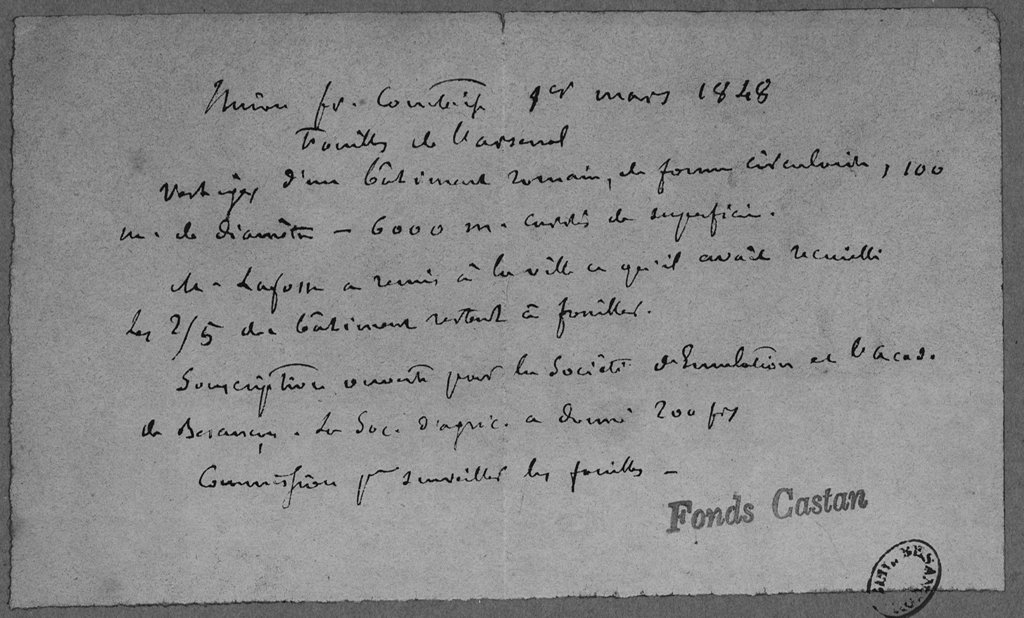 Union fr. Comtoise 1er mars 1848
Fouilles de l'arsenal
Vestiges d'un bâtiment romain, de forme circulaire, 100
m. de diamètre — 6000 m. carrés de superficie.
M. Lafosse a remis à la ville ce qu'il avait recueilli
Les 2/5 de bâtiment restent à fouiller.
Souscription ouverte par la Société d'Emulation et l'Acad.
de Besançon. La Soc. d'agric. a donné 200 frs
Commission pr surveiller les fouilles —
Fonds Castan